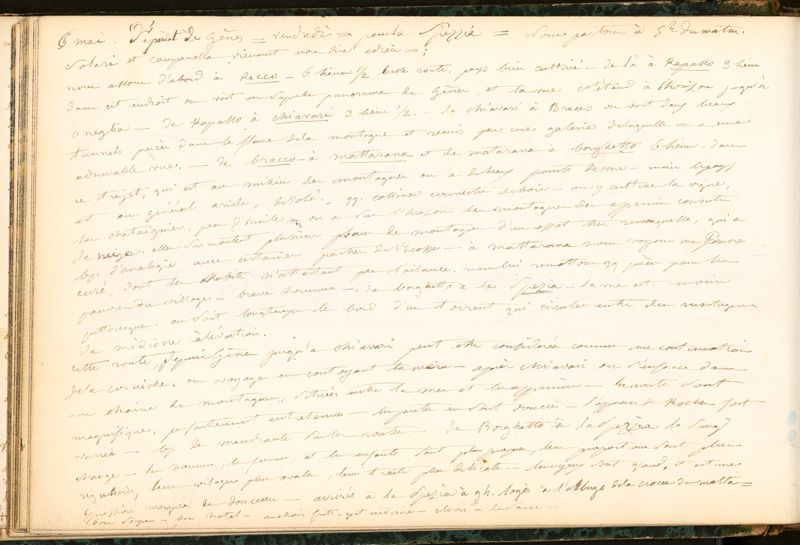 6 mai. Départ de Gênes = vendredi = pour la Spezzia = Nous partons à 5h du matin.
Solari et campanella viennent nous dire adieu = ;
nous allons d'abord à Recco - 6 heures 1/2 belle route, pays bien cultivé - de là à Rapallo 3 heures
dans cet endroit on voit un superbe panorama de Gênes, et la vue s'étend à l'horizon jusqu'à
oneglia - de Rapallo à chiavari 3 heures 1/2. - de chiavari à Bracco on voit deux beaux
tunnels percés dans le flanc de la montagne et réunis par une galerie de laquelle on a une
admirable vue. - de bracco à mattarana et de matarana à borghetto 6 heures - dans
ce trajet, qui est au milieu des montagnes on a de beaux points de vue - mais le pays
est en général aride, désolé - qq. collines couvertes de bois - on y cultive la vigne,
les chataigniers, peu d'oliviers - on a à l'horizon les montagnes des apennins couvertes
de neige, elles surmontent plusieurs plans de montagnes d'un effet très remarquable, qui a
bcp d'analogie avec certaines parties de l'Ecosse - à mattarana nous voyons un pauvre
curé, dont les habits n'attestent pas l'aisance. nous lui remettons qq pièces pour les
pauvres du village - brave homme - de borghetto à la Spezia - la vue est moins
pittoresque. on suit longtemps le bord d'un torrent qui circule entre des montagnes
de médiocre élévation.
cette route depuis Gênes jusqu'à chiavari peut être considérée comme une continuation
de la corniche. on voyage en cotoyant la mer - après chiavari on s'enfonce dans
une chaîne de montagnes, situées entre la mer et les apennins - la route est
magnifique, parfaitement entretenue - les pentes en sont douces -
variée - bcp de mendiants sur la route - de Borghetto à la Spezzia le sang
change - les hommes, les femmes, et les enfants sont plus propres, leurs proportions sont plus
régulières, leurs visages plus ovales, leurs traits plus délicats - les yeux sont grands, et ont une
expression marquée de douceur - arrivés à la Spezia à 9h. logés à l'albergo della croce di malta =
bon souper - bon hotel -